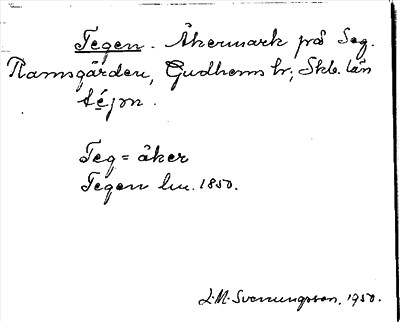 Tegen. Åkermark på Seg.
Ramsgården, Gudhems hr; Skb. län
té̱jɒn.
Teg = åker
Tegen lm. 1850.
L.M. Svenungsson. 1950.